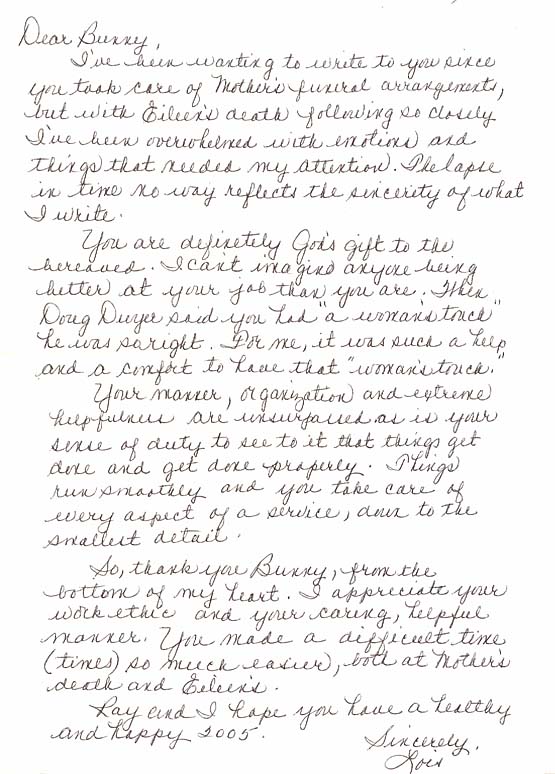 Dear Bunny,
I've been wanting to write to you since
you took care of Mother's funeral arrangements,
but with Eileen's death following so closely
I've been overwhelmed with emotions and
things that needed my attention. The lapse
in time no way reflects the sincerity of what
I write.
You are definetely God's gift to the
bereaved. I can't imagine anyone being
better at your job than you are. When
Doug Dwyer said you had "a woman's touch"
he was so right. For me, it was such a help
and a comfort to have that "woman's touch."
Your manner, organization and extreme
helpfulness are unsurpassed as is your
sense of duty to see to it that things get
done and get done properly. Things
run smoothly and you take care of
every aspect of a service, down to the
smallest detail.
So, thank you Bunny, from the
bottom of my heart. I appreciate your
work ethic and your caring, helpful
manner. You made a difficult time
(times) so much easier, both at Mother's
death and Eileen's.
Ray and I hope you have a healthy
and happy 2005.
Sincerely,
Lois